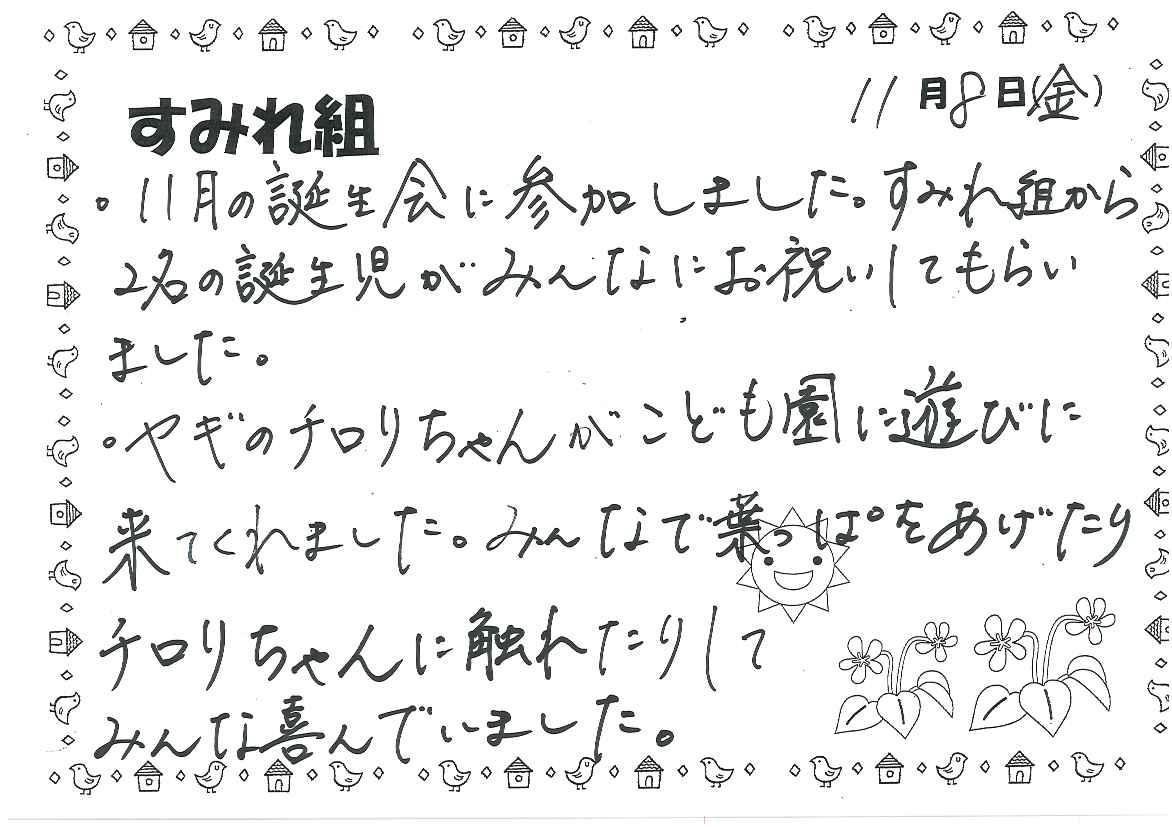 すみれ組
11月8日(金)
。11月の誕生会に参加しました。すみれ組から
2名の誕生児がみんなにお祝いしてもらい
ました。
。ヤギのチロリちゃんがこども園に遊びに
来てくれました。みんなで葉っぱをあげたり
チロリちゃんに触れたりして
みんな喜んでいました。